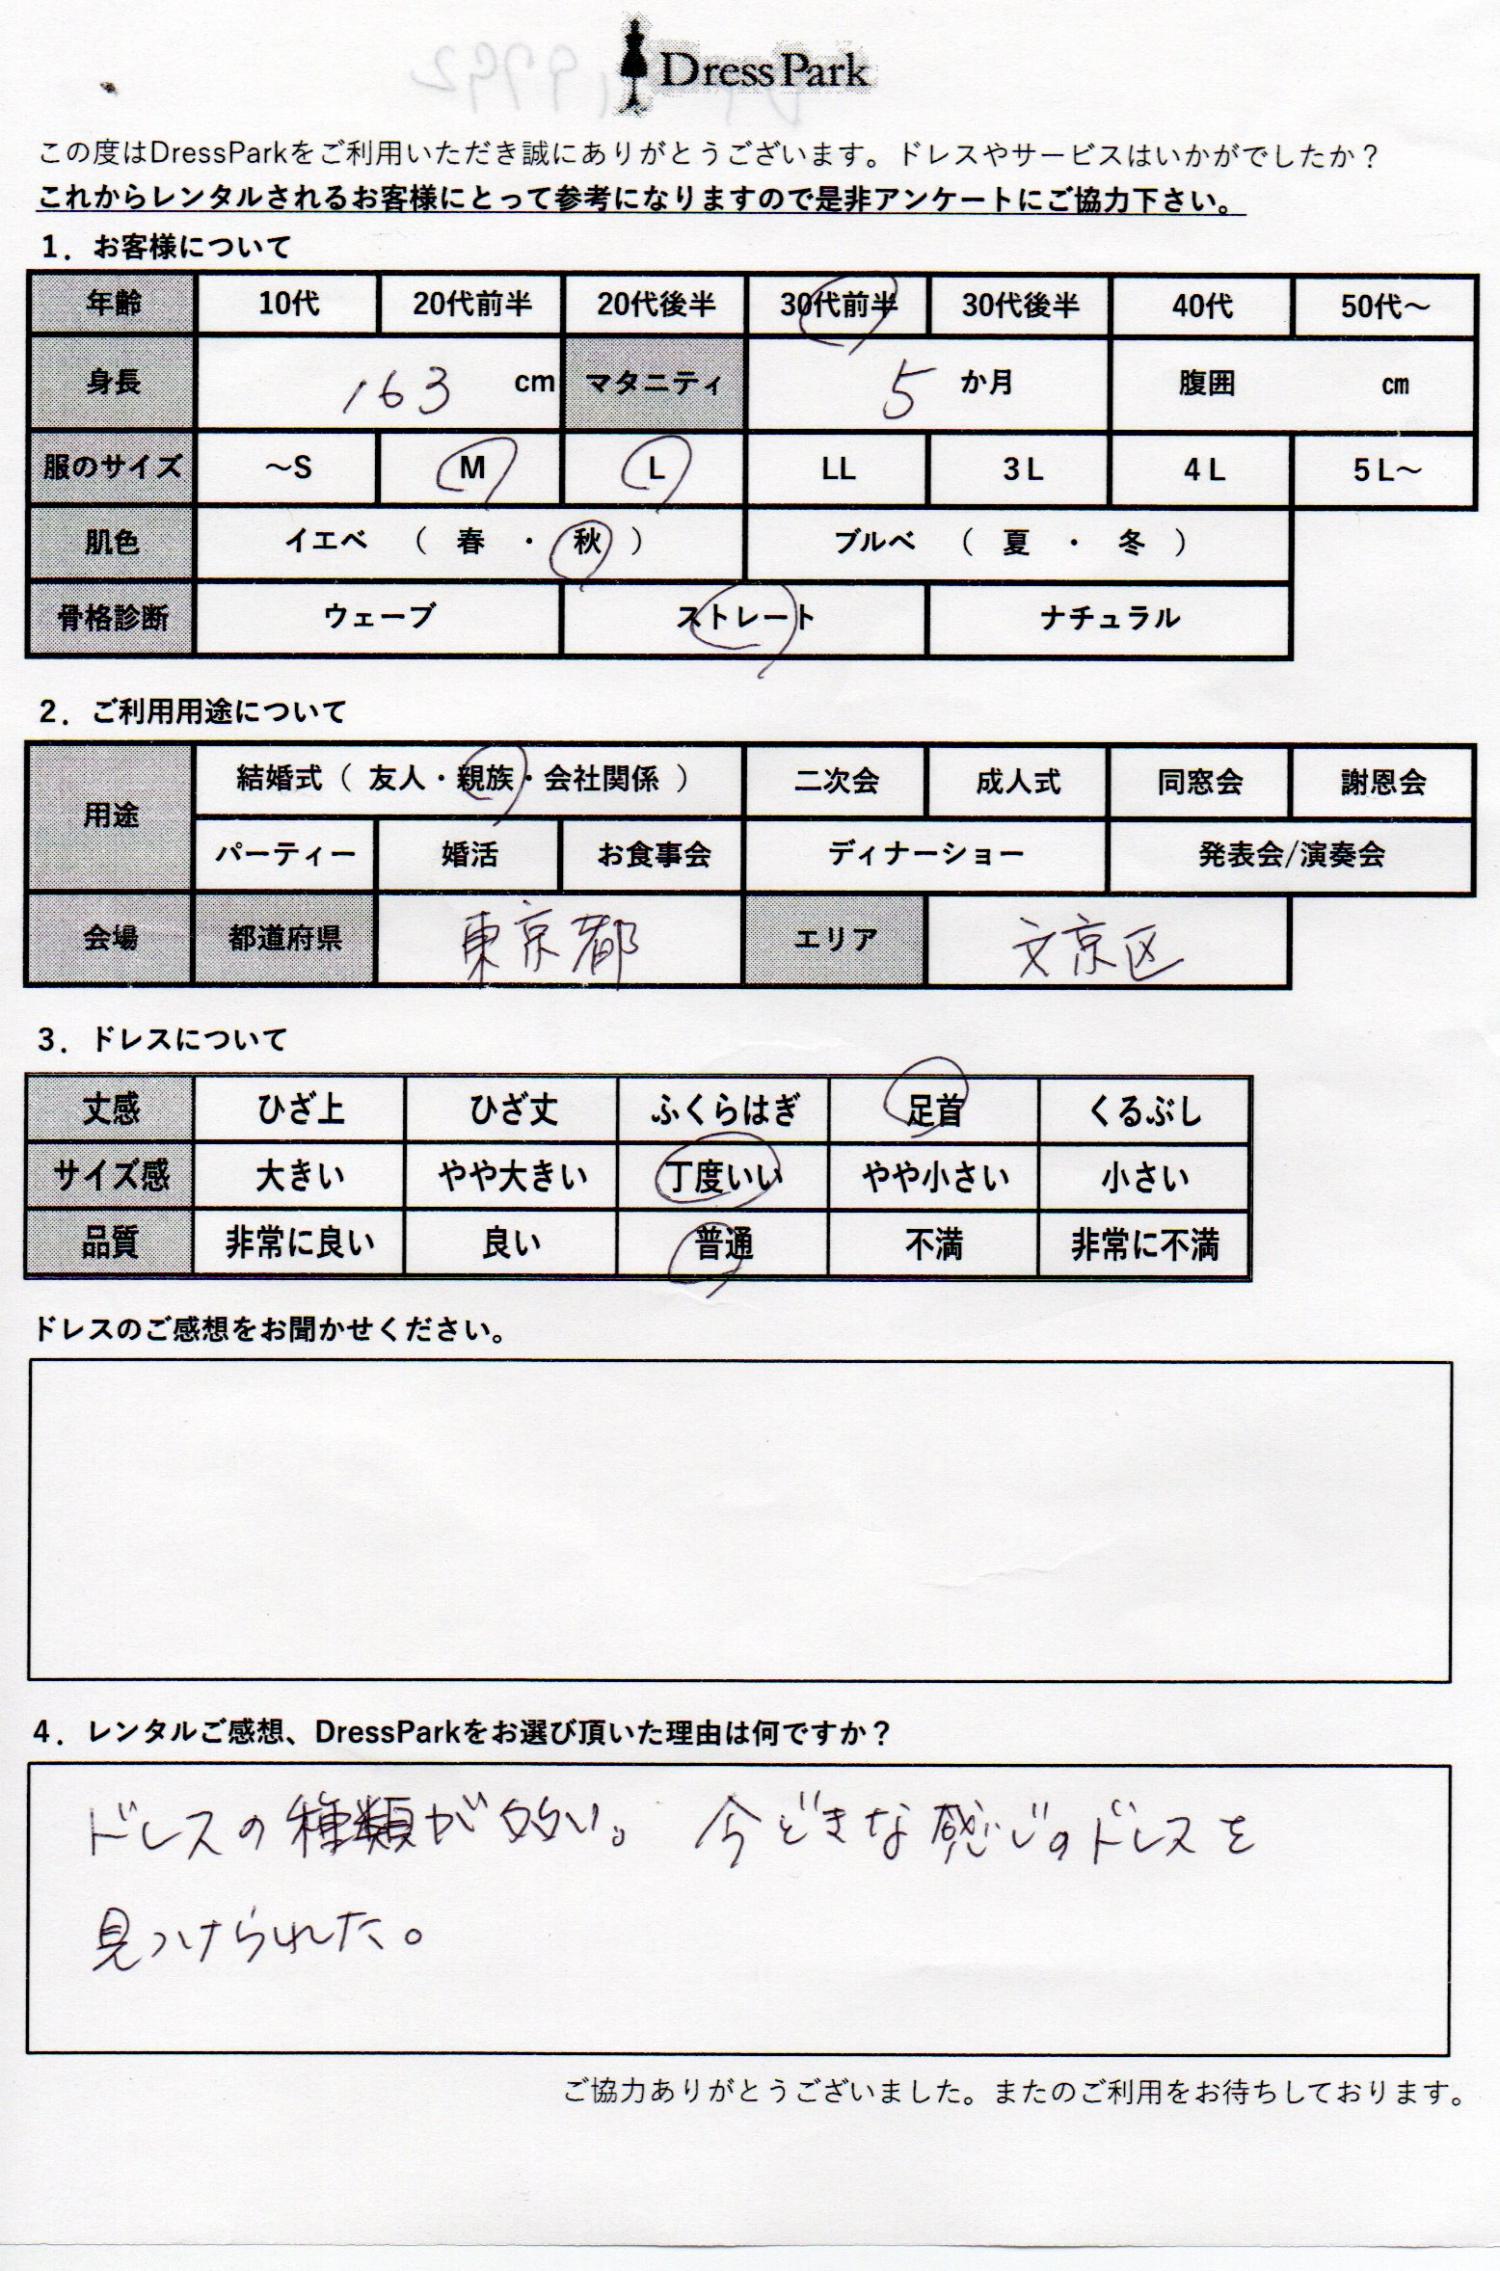 DressPark
この度はDressParkをご利用いただき誠にありがとうございます。ドレスやサービスはいかがでしたか？
これからレンタルされるお客様にとって参考になりますので是非アンケートにご協力下さい。
1．お客様について
年齢 10代 20代前半 20代後半 30代前半 30代後半 40代 50代～
身長 163 cm マタニティ 5 か月 腹囲 ㎝
服のサイズ ～S M L LL 3L 4L 5L～
肌色 イエベ （ 春 ・ 秋 ） ブルベ （ 夏 ・ 冬 ）
骨格診断 ウェーブ ストレート ナチュラル
2．ご利用用途について
用途 結婚式（ 友人・親族・会社関係 ） 二次会 成人式 同窓会 謝恩会
パーティー 婚活 お食事会 ディナーショー 発表会/演奏会
会場 都道府県 東京都 エリア 文京区
3．ドレスについて
丈感 ひざ上 ひざ丈 ふくらはぎ 足首 くるぶし
サイズ感 大きい やや大きい 丁度いい やや小さい 小さい
品質 非常に良い 良い 普通 不満 非常に不満
ドレスのご感想をお聞かせください。
4．レンタルご感想、DressParkをお選び頂いた理由は何ですか？
ドレスの種類が多い。 今どきな感じのドレスを
見つけられた。
ご協力ありがとうございました。またのご利用をお待ちしております。